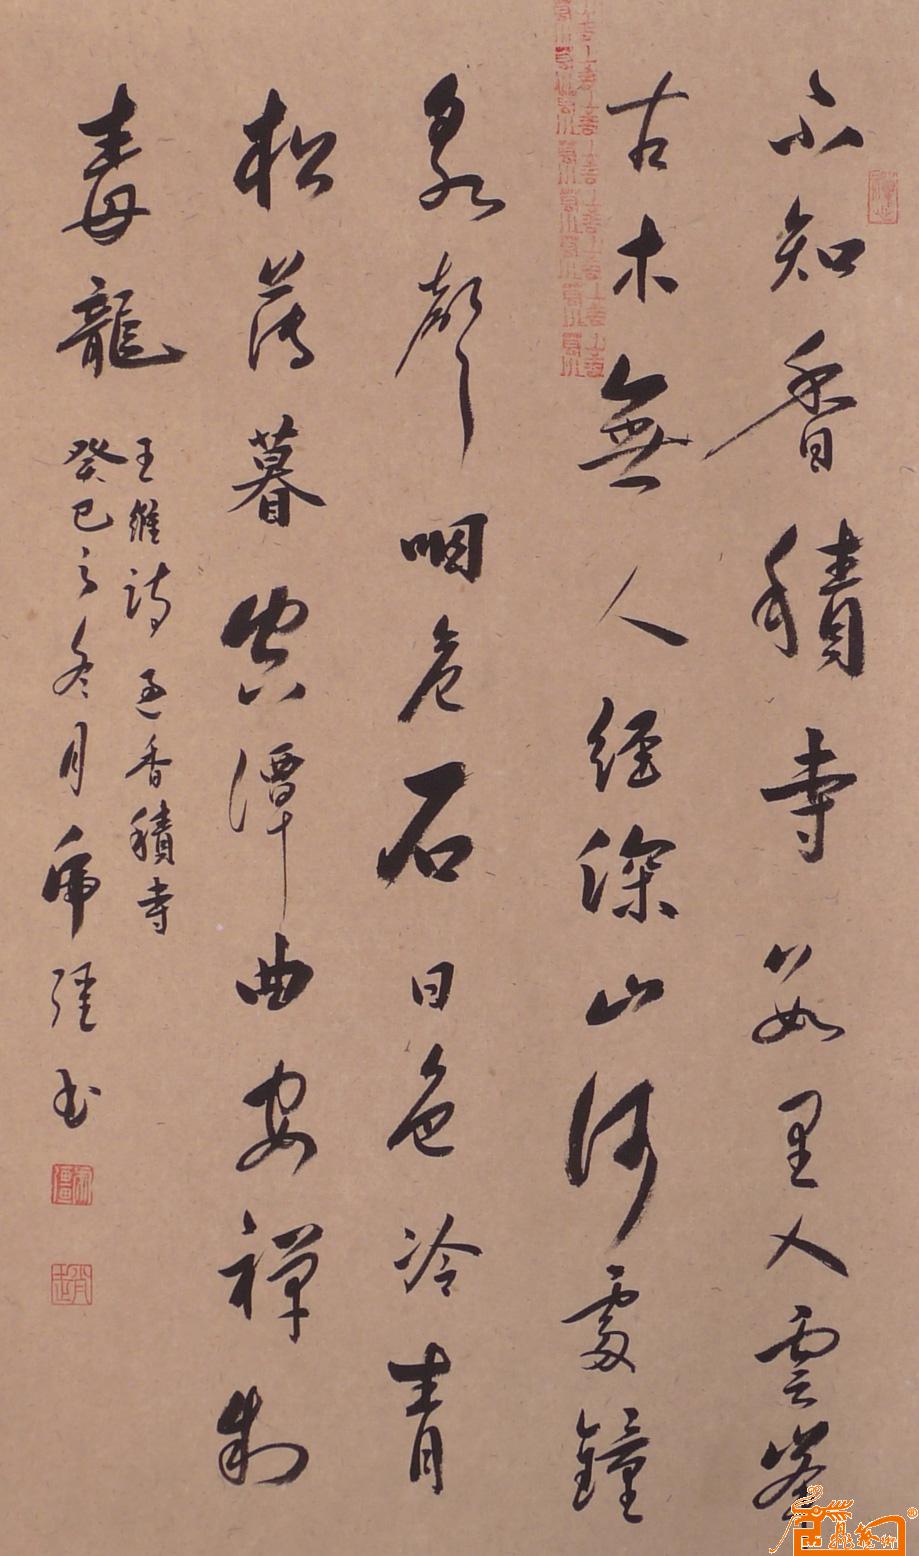 不知香積寺數里入雲峯
古木無人經深山何處鐘
泉聲咽危石日色冷青
松薄暮空潭曲安禪制
毒龍
王維詩過香積寺
癸巳之冬月虎强書